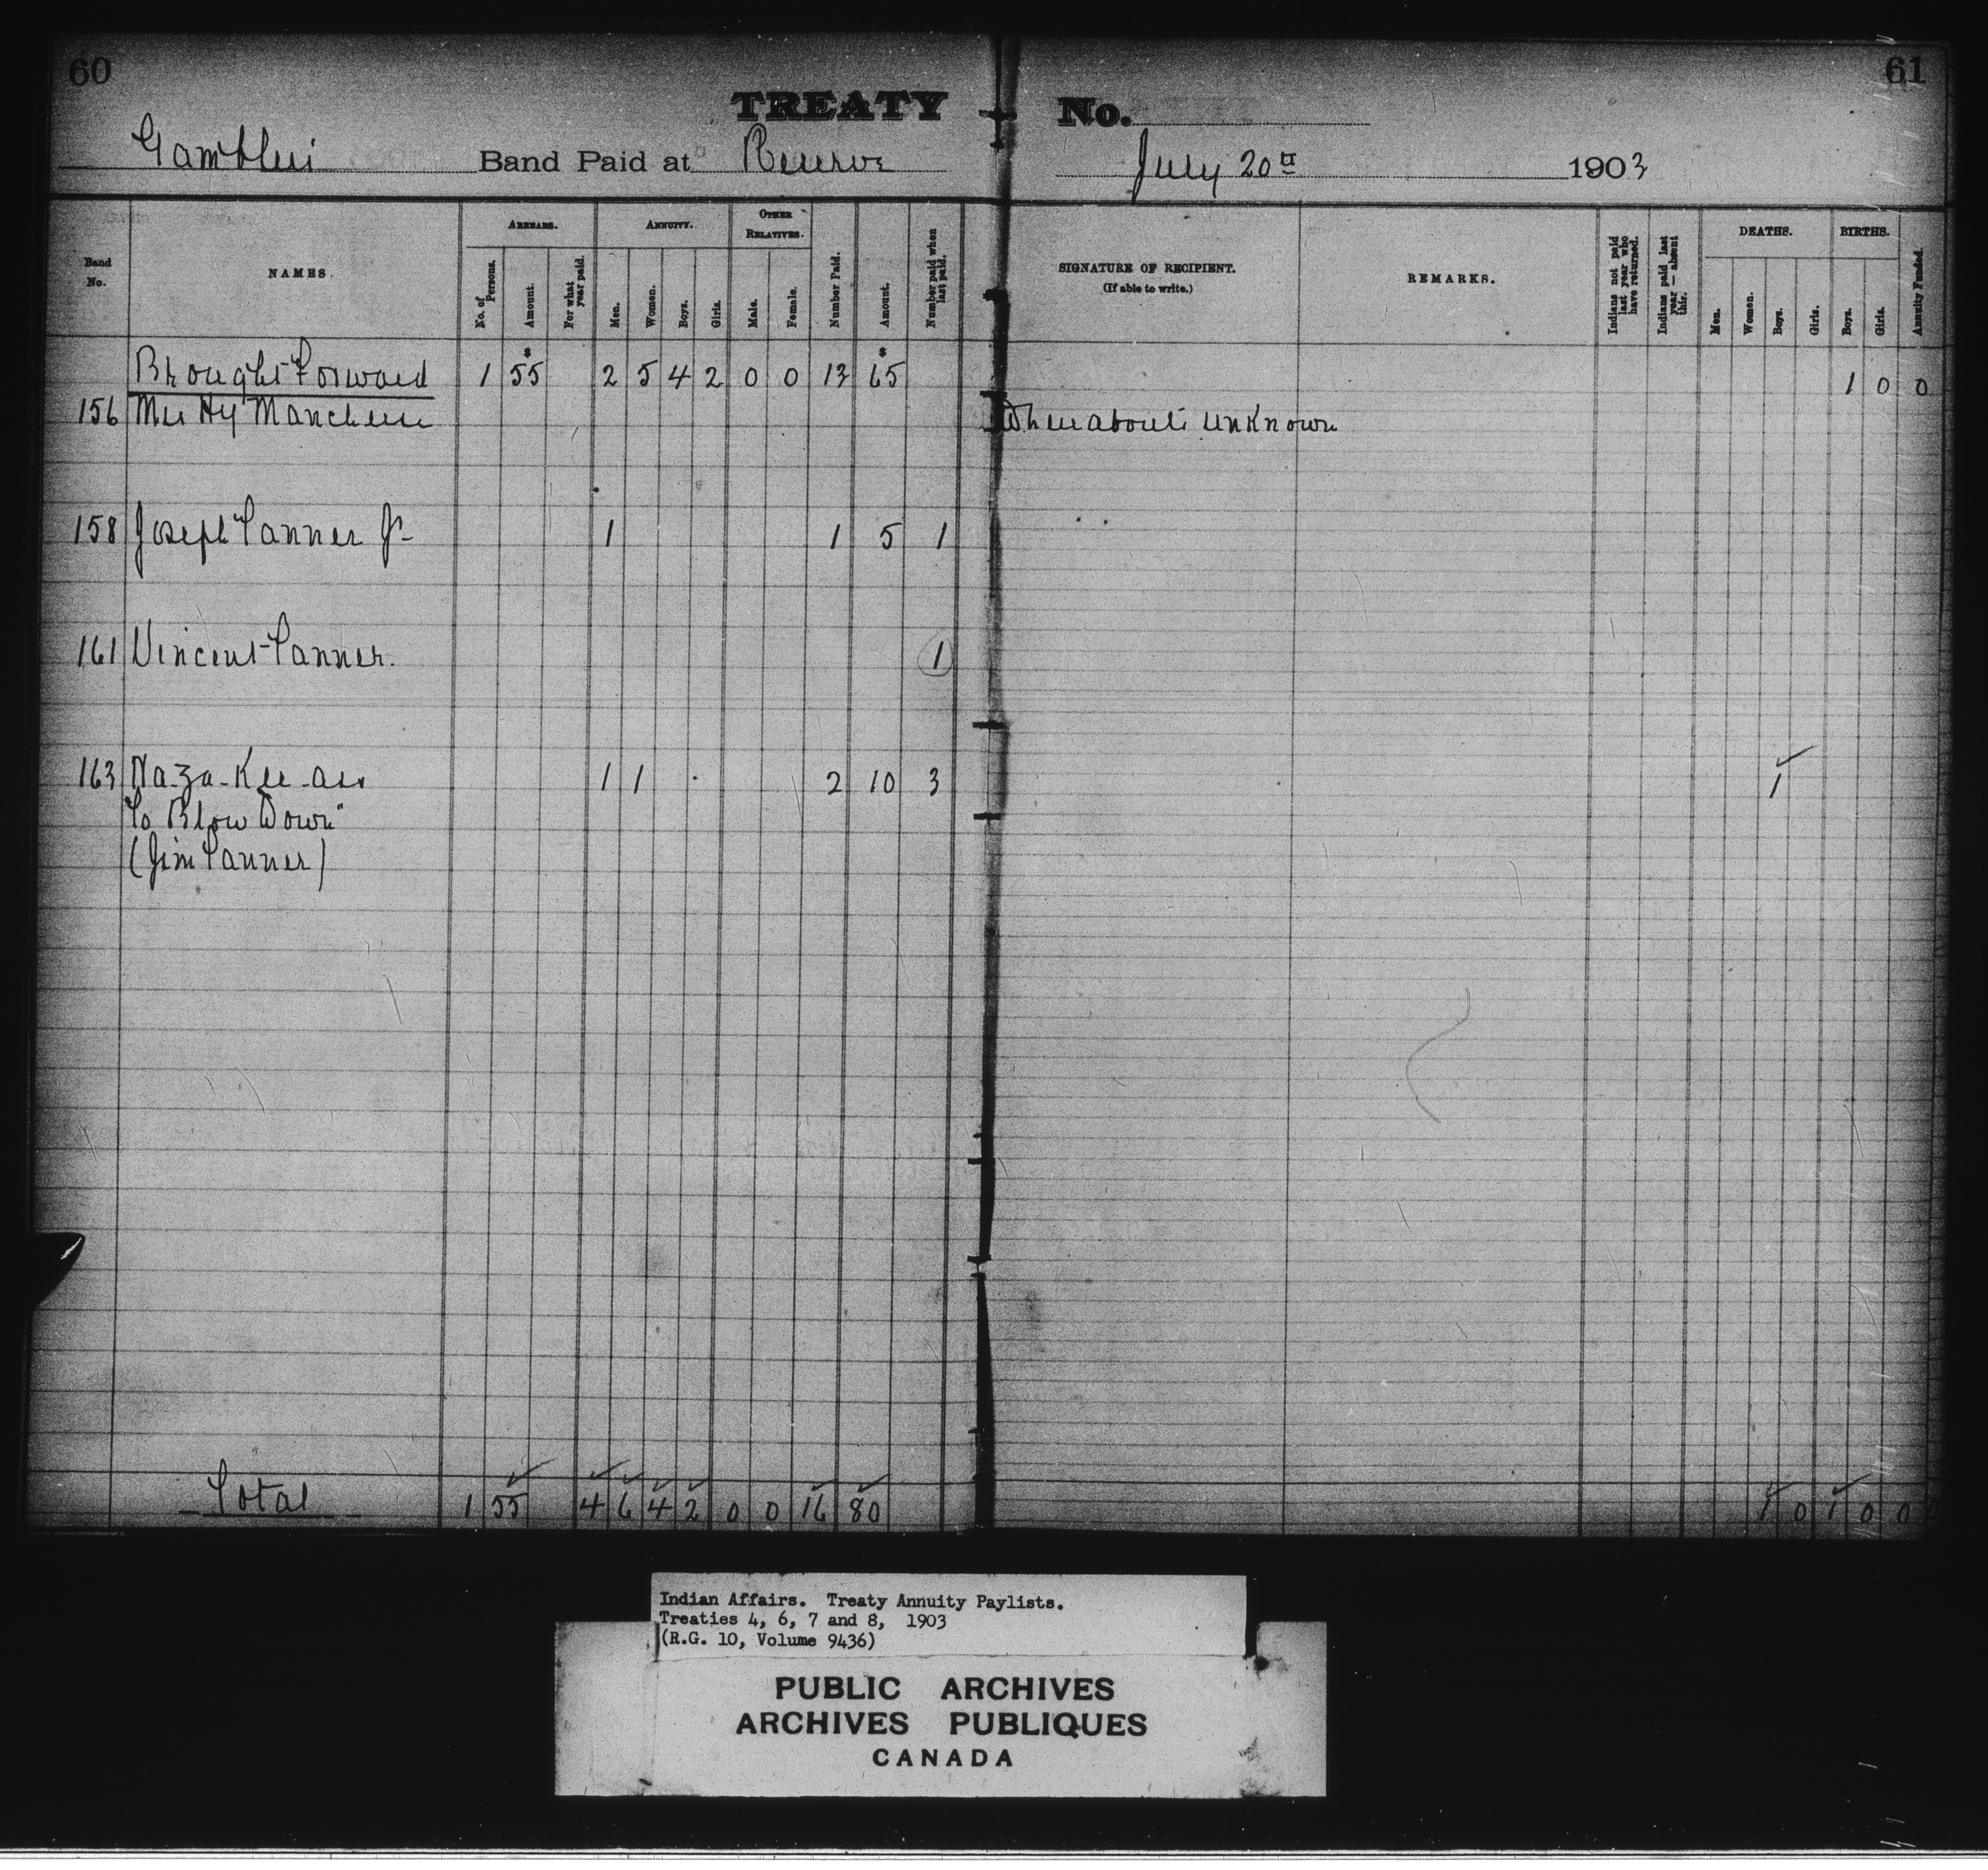 60
61
TREATY No.
Gamblers Band Paid at Reserve July 20th 1903
Band No.
NAMES.
ARREARS.
No. of Persons.
Amount.
For what year paid.
ANNUITY.
Men.
Women.
Boys.
Girls.
OTHER RELATIVES.
Male.
Female.
Number Paid.
Amount.
Number paid when last paid.
SIGNATURE OF RECIPIENT.
(If able to write.)
REMARKS.
Indians not paid last year who have returned.
Indians paid last year — absent this.
DEATHS.
Men.
Women.
Boys.
Girls.
BIRTHS.
Boys.
Girls.
Annuity Funded.
Brought Forward 1 55 2 5 4 2 0 0 13 65 1 0 0
156 Mrs Hy Whereabouts unknown
158 Joseph Tanner Jr 1 1 5 1
161 Vincent Tanner. 1
163 Na-za-kee-ass 1 1 2 10 3 1
"To Blow Down"
(Jim Tanner)
Total 1 55 4 6 4 2 0 0 16 80 1 0 1 0 0
Indian Affairs. Treaty Annuity Paylists.
Treaties 4, 6, 7 and 8, 1903
(R.G. 10, Volume 9436)
PUBLIC ARCHIVES
ARCHIVES PUBLIQUES
CANADA